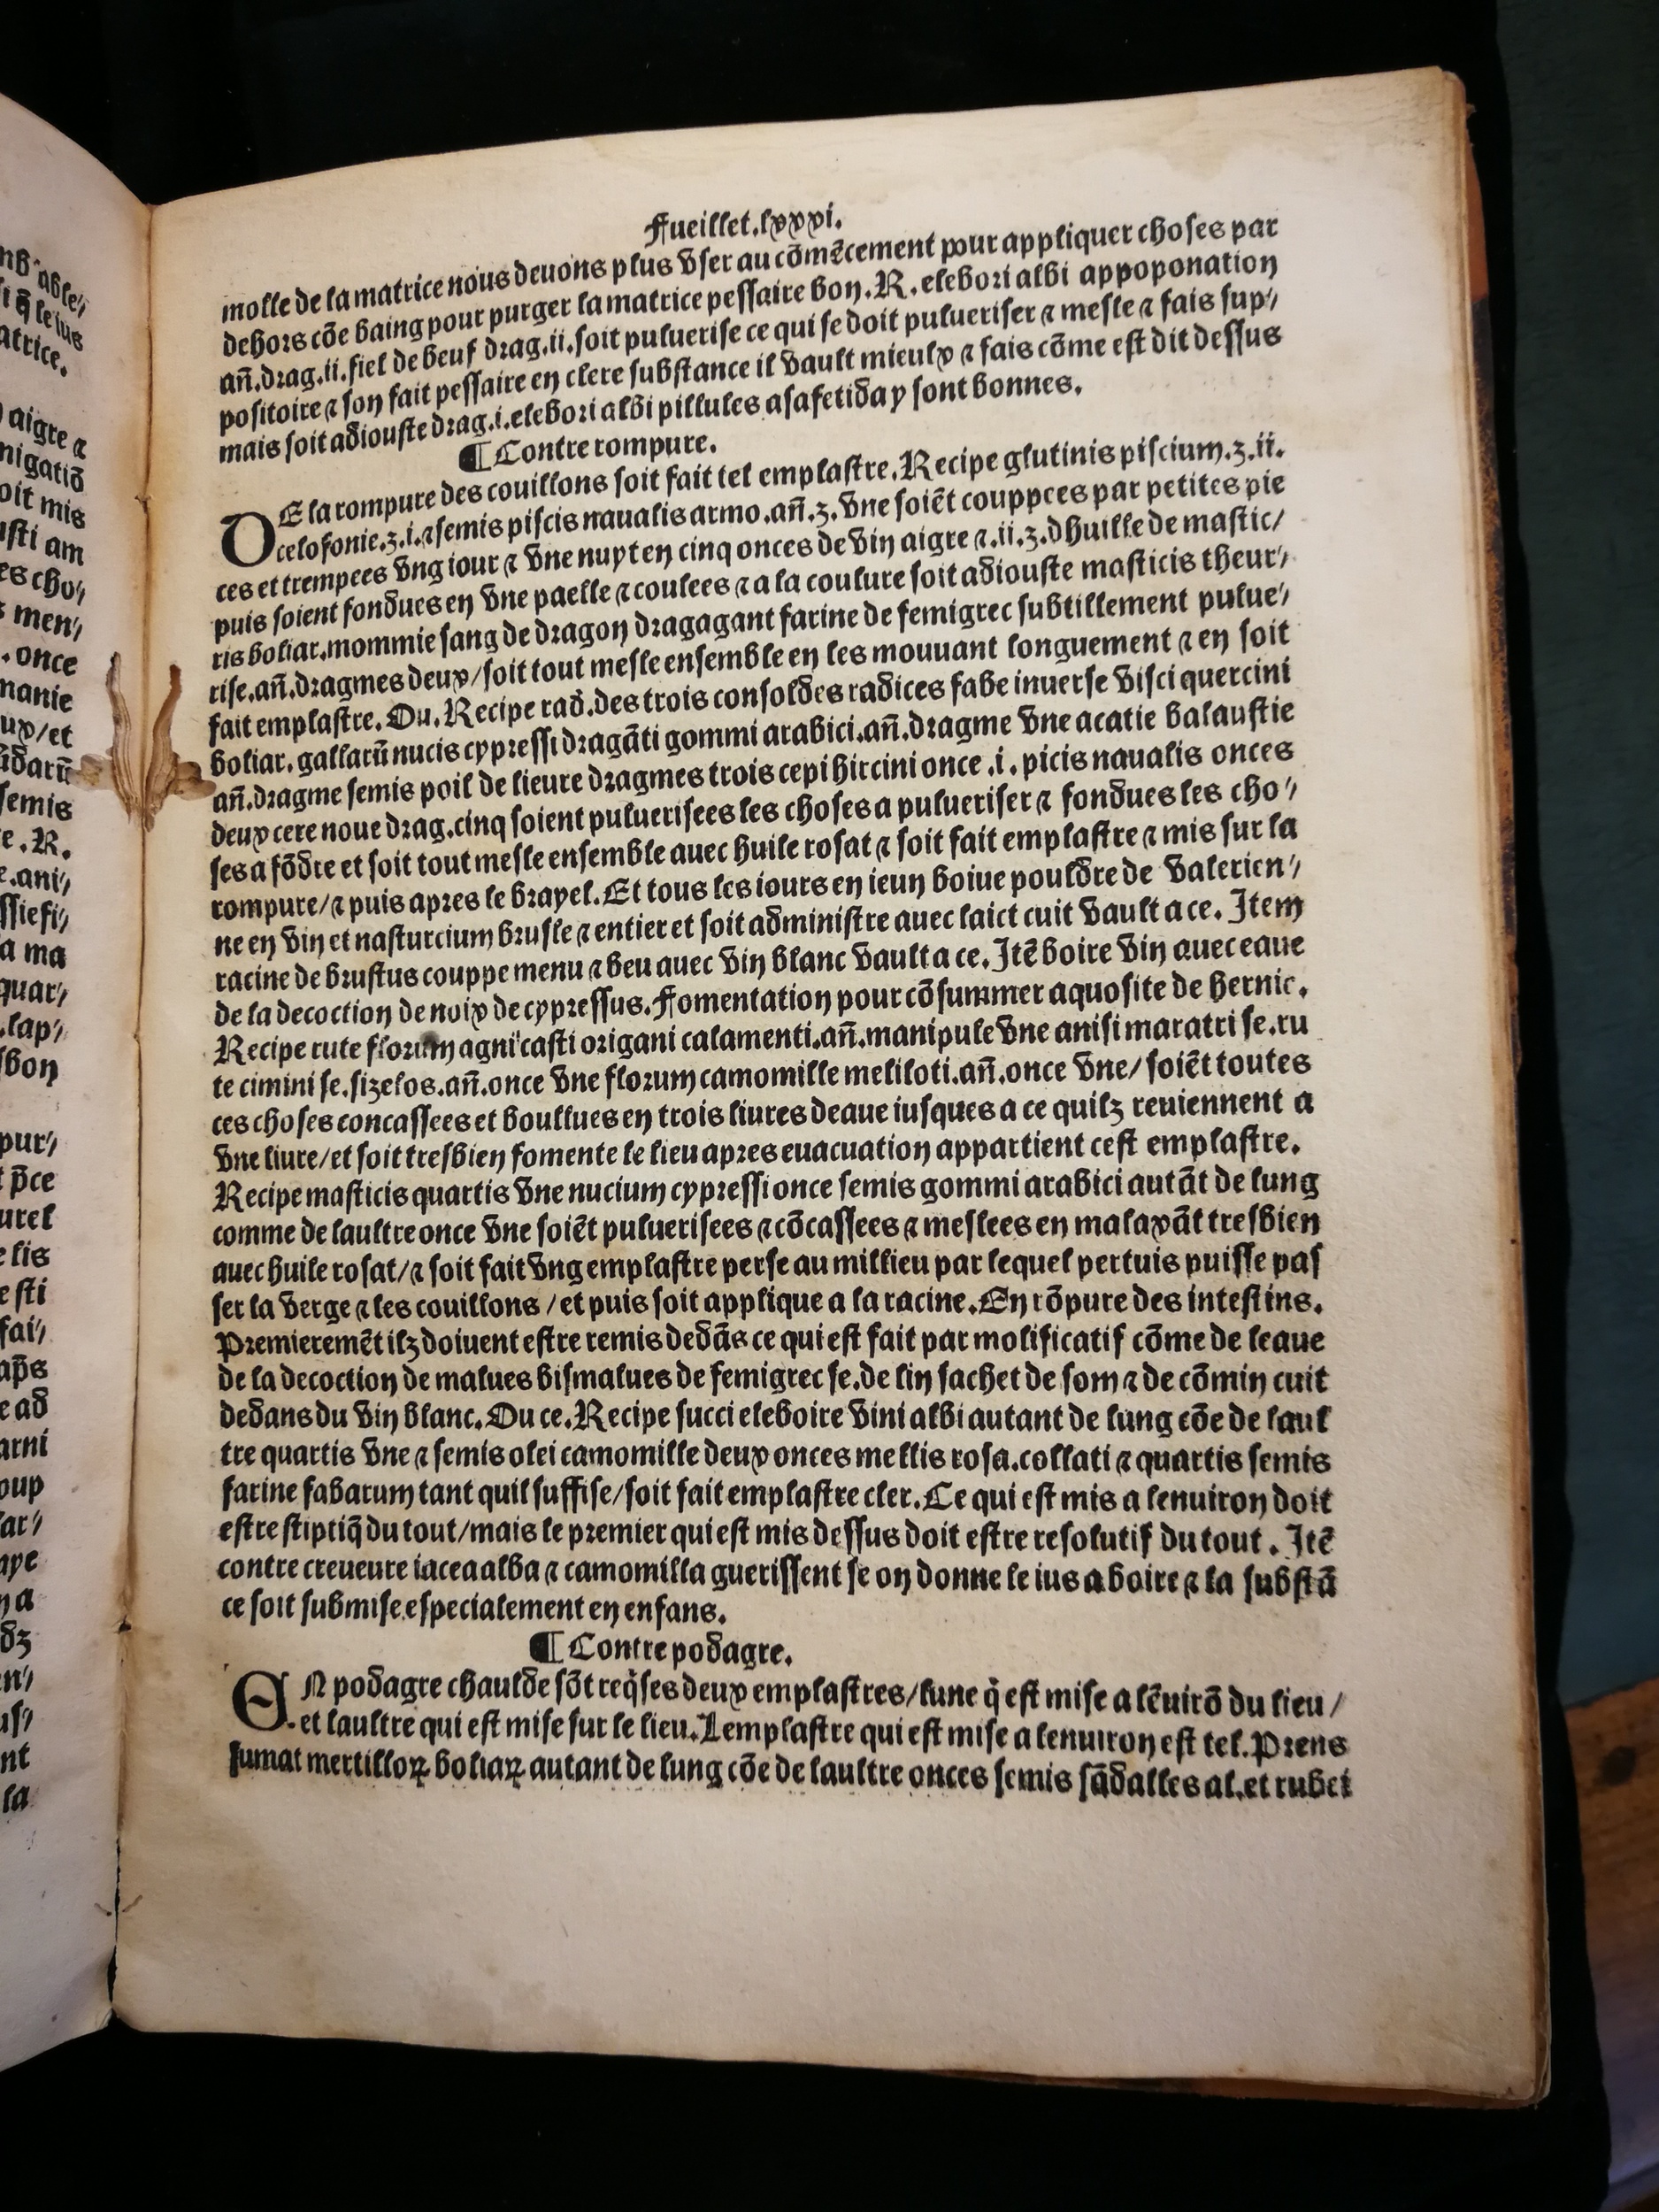 Fueillet.lxxxi.
molle de la matrice nous deuons plus vser au cōmēcement pour appliquer choses par
dehors cōe baing pour purger la matrice pessaire bon. R. elebori albi appoponation
an̄.drag.ii.fiel de beuf drag.ii.soit puluerise ce qui se doit pulueriser ⁊ mesle ⁊ fais sup⸗
positoire ⁊ son fait pessaire en clere substance il vault mieulx ⁊ fais cōme est dit dessus
mais soit adiouste drag.i.elebori albi pillules asafetida y sont bonnes.
¶ Contre rompure.
DE la rompure des couillons soit fait tel emplastre. Recipe glutinis piscium.ʒ.ii.
celofonie.ʒ.i.⁊ semis piscis naualis armo.an̄.ʒ.vne soiēt couppees par petites pie
ces et trempees vng iour ⁊ vne nuyt en cinq onces de vin aigre ⁊.ii.ʒ.dhuille de mastic/
puis soient fondues en vne paelle ⁊ coulees ⁊ a la coulure soit adiouste masticis theur⸗
ris boliar.mommie sang de dragon dragagant farine de femigrec subtillement pulue⸗
rise.an̄.dragmes deux/soit tout mesle ensemble en les mouuant longuement ⁊ en soit
fait emplastre. Ou. Recipe rad.des trois consoldes radices fabe inuerse visci quercini
boliar. gallarū nucis cypressi dragāti gommi arabici.an̄.dragme vne acatie balaustie
an̄.dragme semis poil de lieure dragmes trois cepi hircini once .i. picis naualis onces
deux cere noue drag.cinq soient puluerisees les choses a pulueriser ⁊ fondues les cho⸗
ses a fōdre et soit tout mesle ensemble auec huile rosat ⁊ soit fait emplastre ⁊ mis sur la
rompure/⁊ puis apres le brayel. Et tous les iours en ieun boiue pouldre de valerien⸗
ne en vin et nasturcium brusle ⁊ entier et soit administre auec laict cuit vault a ce. Item
racine de bruscus couppe menu ⁊ beu auec vin blanc vault a ce. Itē boire vin auec eaue
de la decoction de noix de cypressus. Fomentation pour cōsummer aquosite de hernic.
Recipe rute florum agni casti origani calamenti.an̄.manipule vne anisi maratri se.ru
te cimini se.sizelos.an̄.once vne florum camomille meliloti.an̄.once vne/ soiēt toutes
ces choses concassees et boullues en trois liures deaue iusques a ce quilz reuiennent a
vne liure/et soit tresbien fomente le lieu apres euacuation appartient cest emplastre.
Recipe masticis quartis vne nucium cypressi once semis gommi arabici autāt de lung
comme de laultre once vne soiēt puluerisees ⁊ cōcassees ⁊ meslees en malaxāt tresbien
auec huile rosat/⁊ soit fait vng emplastre perse au millieu par lequel pertuis puisse pas
ser la verge ⁊ les couillons /et puis soit applique a la racine. En rōpure des intestins.
Premieremēt ilz doiuent estre remis dedās ce qui est fait par molificatif cōme de leaue
de la decoction de malues bismalues de femigrec se.de lin sachet de som ⁊ de cōmin cuit
dedans du vin blanc. Ou ce. Recipe succi eleboire vini albi autant de lung cōe de laul
tre quartis vne ⁊ semis olei camomille deux onces mellis rosa.collati ⁊ quartis semis
farine fabarum tant quil suffise/soit fait emplastre cler. Ce qui est mis a lenuiron doit
estre stiptiq̄ du tout/mais le premier qui est mis dessus doit estre resolutif du tout. Itē
contre creueure iacea alba ⁊ camomilla guerissent se on donne le ius a boire ⁊ la substā
ce soit submise especialement en enfans.
¶ Contre podagre.
EN podagre chaulde sōt reqͥses deux emplastres/lune qͥ est mise a lēuirō du lieu/
et laultre qui est mise sur le lieu. Lemplastre qui est mise a lenuiron est tel. Prens
sumat mertilloꝝ boliaꝝ autant de lung cōe de laultre onces semis sādalles al.et rubei